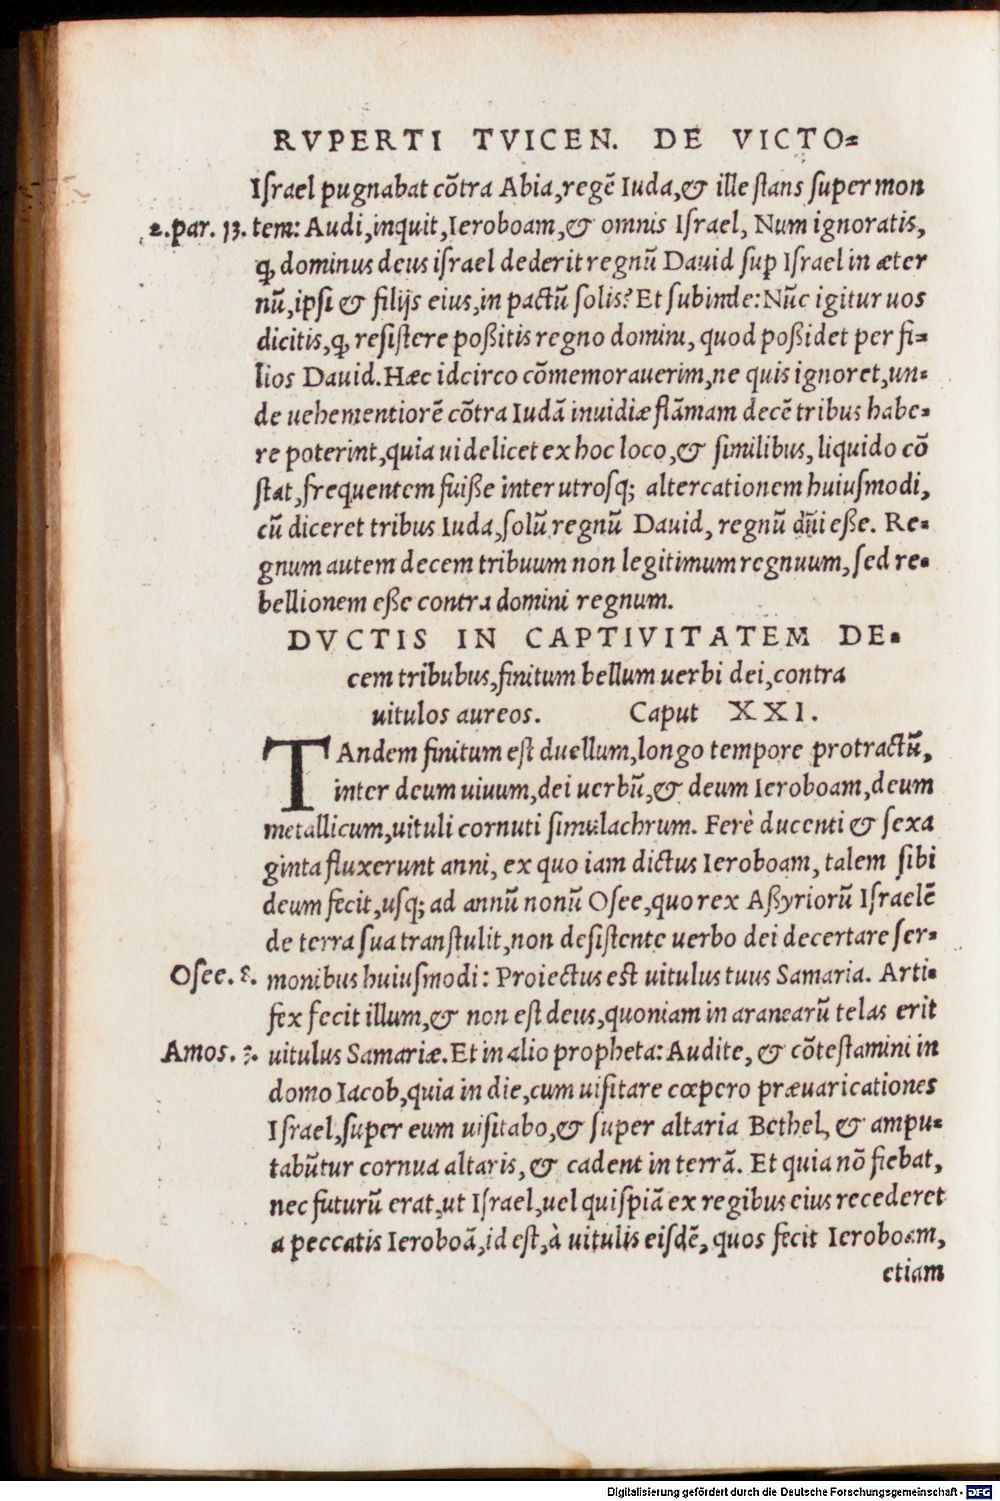 RVPERTI TVICEN. DE VICTO-
Israel pugnabat cōtra Abia, regē Iuda, & ille stans super mon
2. par. 13. tem: Audi, inquit, Ieroboam, & omnis Israel, Num ignoratis,
ꝙ dominus deus israel dederit regnū Dauid suꝑ Israel in æter
nū, ipsi & filijs eius, in pactū solis? Et subinde: Nūc igitur uos
dicitis, ꝙ resistere poßitis regno domini, quod poßidet per fi-
lios Dauid. Hæc idcirco cōmemorauerim, ne quis ignoret, un-
de uehementiorē cōtra Iudā inuidiæ flāmam decē tribus habe-
re poterint, quia uidelicet ex hoc loco, & similibus, liquido cō
stat, frequentem fuiße inter utrosq; altercationem huiusmodi,
cū diceret tribus Iuda, solū regnū Dauid, regnū dn̄i eße. Re-
gnum autem decem tribuum non legitimum regnuum, sed re-
bellionem eße contra domini regnum.
DVCTIS IN CAPTIVITATEM DE-
cem tribubus, finitum bellum uerbi dei, contra
uitulos aureos. Caput XXI.
TAndem finitum est duellum, longo tempore protractū,
inter deum uiuum, dei uerbū, & deum Ieroboam, deum
metallicum, uituli cornuti simulachrum. Ferè ducenti & sexa
ginta fluxerunt anni, ex quo iam dictus Ieroboam, talem sibi
deum fecit, usq; ad annū nonū Osee, quo rex Aßyriorū Israelē
de terra sua transtulit, non desistente uerbo dei decertare ser-
Osee. 8. monibus huiusmodi: Proiectus est uitulus tuus Samaria. Arti-
fex fecit illum, & non est deus, quoniam in aranearū telas erit
Amos. 3. uitulus Samariæ. Et in alio propheta: Audite, & cōtestamini in
domo Iacob, quia in die, cum uisitare cœpero præuaricationes
Israel, super eum uisitabo, & super altaria Bethel, & ampu-
tabūtur cornua altaris, & cadent in terrā. Et quia nō fiebat,
nec futurū erat, ut Israel, uel quispiā ex regibus eius recederet
a peccatis Ieroboā, id est, à uitulis eisdē, quos fecit Ieroboam,
etiam
Digitalisierung gefördert durch die Deutsche Forschungsgemeinschaft - DFG